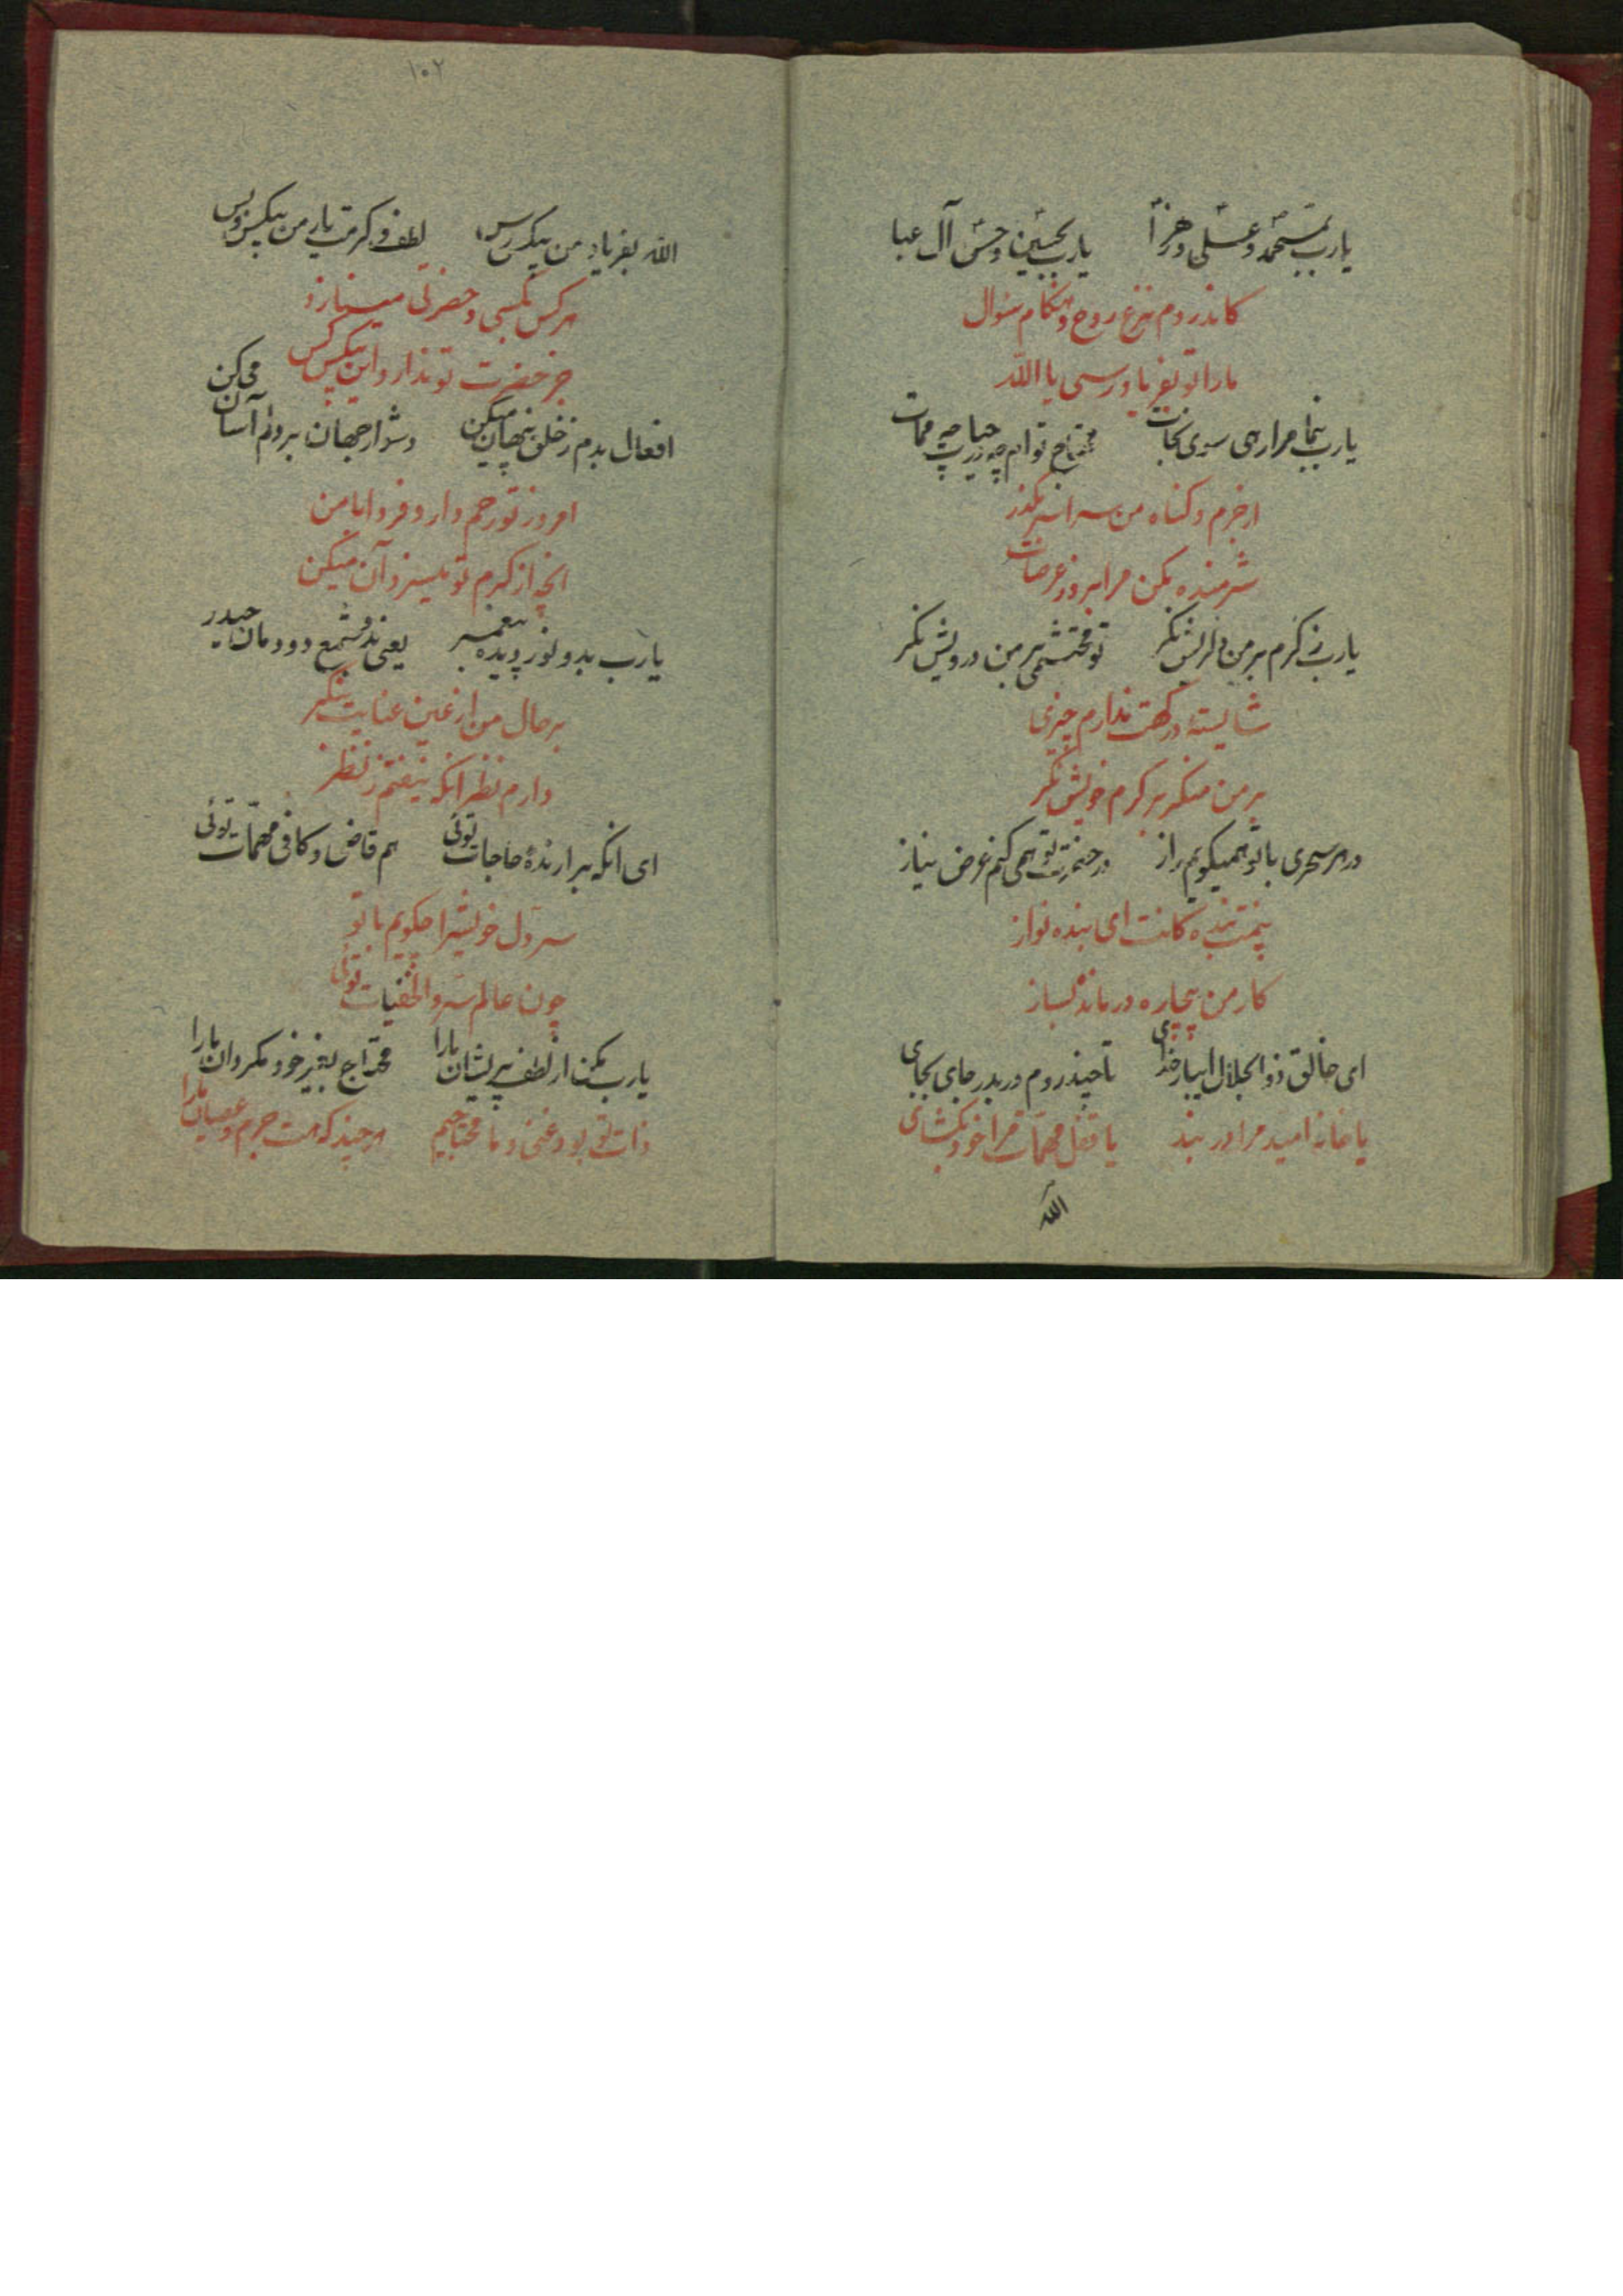 یارب بمحمد و علی و زهرا یارب بحسین و حسن آل عبا
کاندر دم نزع روح و هنگام سئوال
مارا تو بفریاد رسی یا الله
یارب بنما مرا رهی سوی نجات محتاج توام چه در حیات چه ممات
از جرم و گناه من سراسر بگذر
شرمنده مکن مرا بروز عرصات
یارب ز کرم بر من دلریش نگر تو محتشمی بر من درویش نگر
شایسته درگهت ندارم چیزی
بر من منگر بر کرم خویش نگر
در هر سحری با تو همیگویم راز در حضرت تو همی کنم عرض نیاز
بیمنت بندگانت ای بنده نواز
کار من بیچاره درمانده بساز
ای خالق ذوالجلال ای بار خدای تا چند روم دربدر جای بجای
یا خانه امید مرا در بند یا قفل مهمات مرا خود بگشای
الله
۱۰۲
الله بفریاد من بیکس رس لطف و کرمت یار من بیکس و بس
هر کس بکسی و حضرتی مینازد
جز حضرت تو ندارد این بیکس کس
افعال بدم ز خلق پنهان میکن دشوار جهان بر دلم آسان می کن
امروز تو رحم دار و فردا با من
انچه از کرم تو میسزد آن میکن
یارب بدو نور دیده پیغمبر یعنی بدو شمع دودمان حیدر
بر حال من از عین عنایت بنگر
دارم نظر انکه نیفتم ز نظر
ای انکه برارندهٔ حاجات توئی هم قاض و کافی مهمات توئی
سر دل خویشرا چگویم با تو
چون عالم سر و الخفیات توئی
یارب مکن از لطف پریشان مارا محتاج بغیر خود مگردان مارا
ذات تو بود غنی و ما محتاجیم هر چند که هست جرم و عصیان مارا